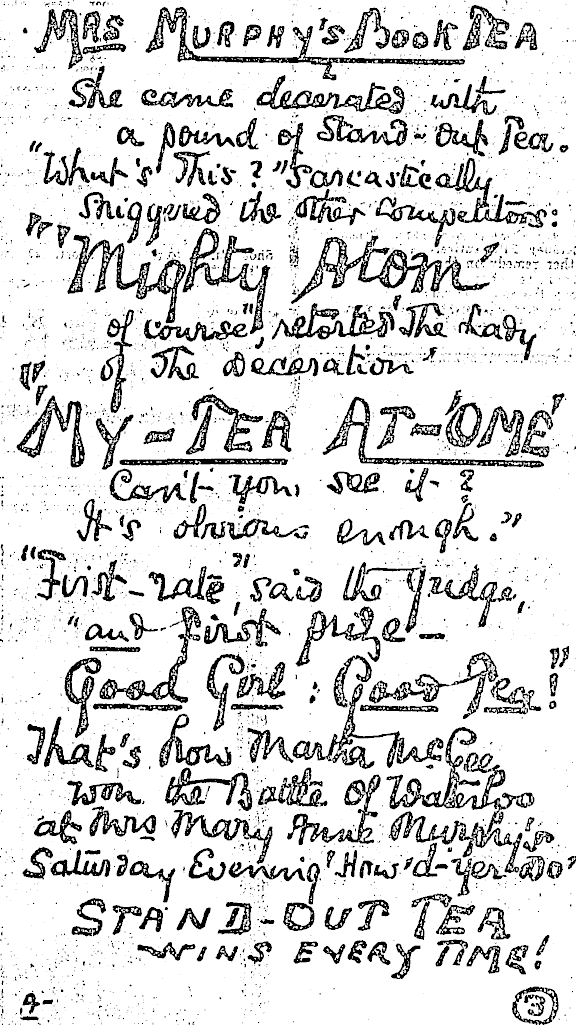 MRS MURPHY'S BOOK TEA
She came decorated with
a pound of Stand-Out Tea.
"What's This?" sarcastically
sniggered the other Competitors:
"'Mighty Atom'
of course", retorted The Lady
of The Decoration'
"'MY-TEA AT-'OME'
Can't you see it?
It's obvious enough."
"First-rate", said the Judge,
"and first prize—
Good Girl: Good Tea!"
That's how Martha McGee
won the Battle of Waterloo
at Mrs Mary Anne Murphy's
Saturday Evening 'How'd-Yer-Do'
STAND-OUT TEA
WINS EVERY TIME!
4-
3